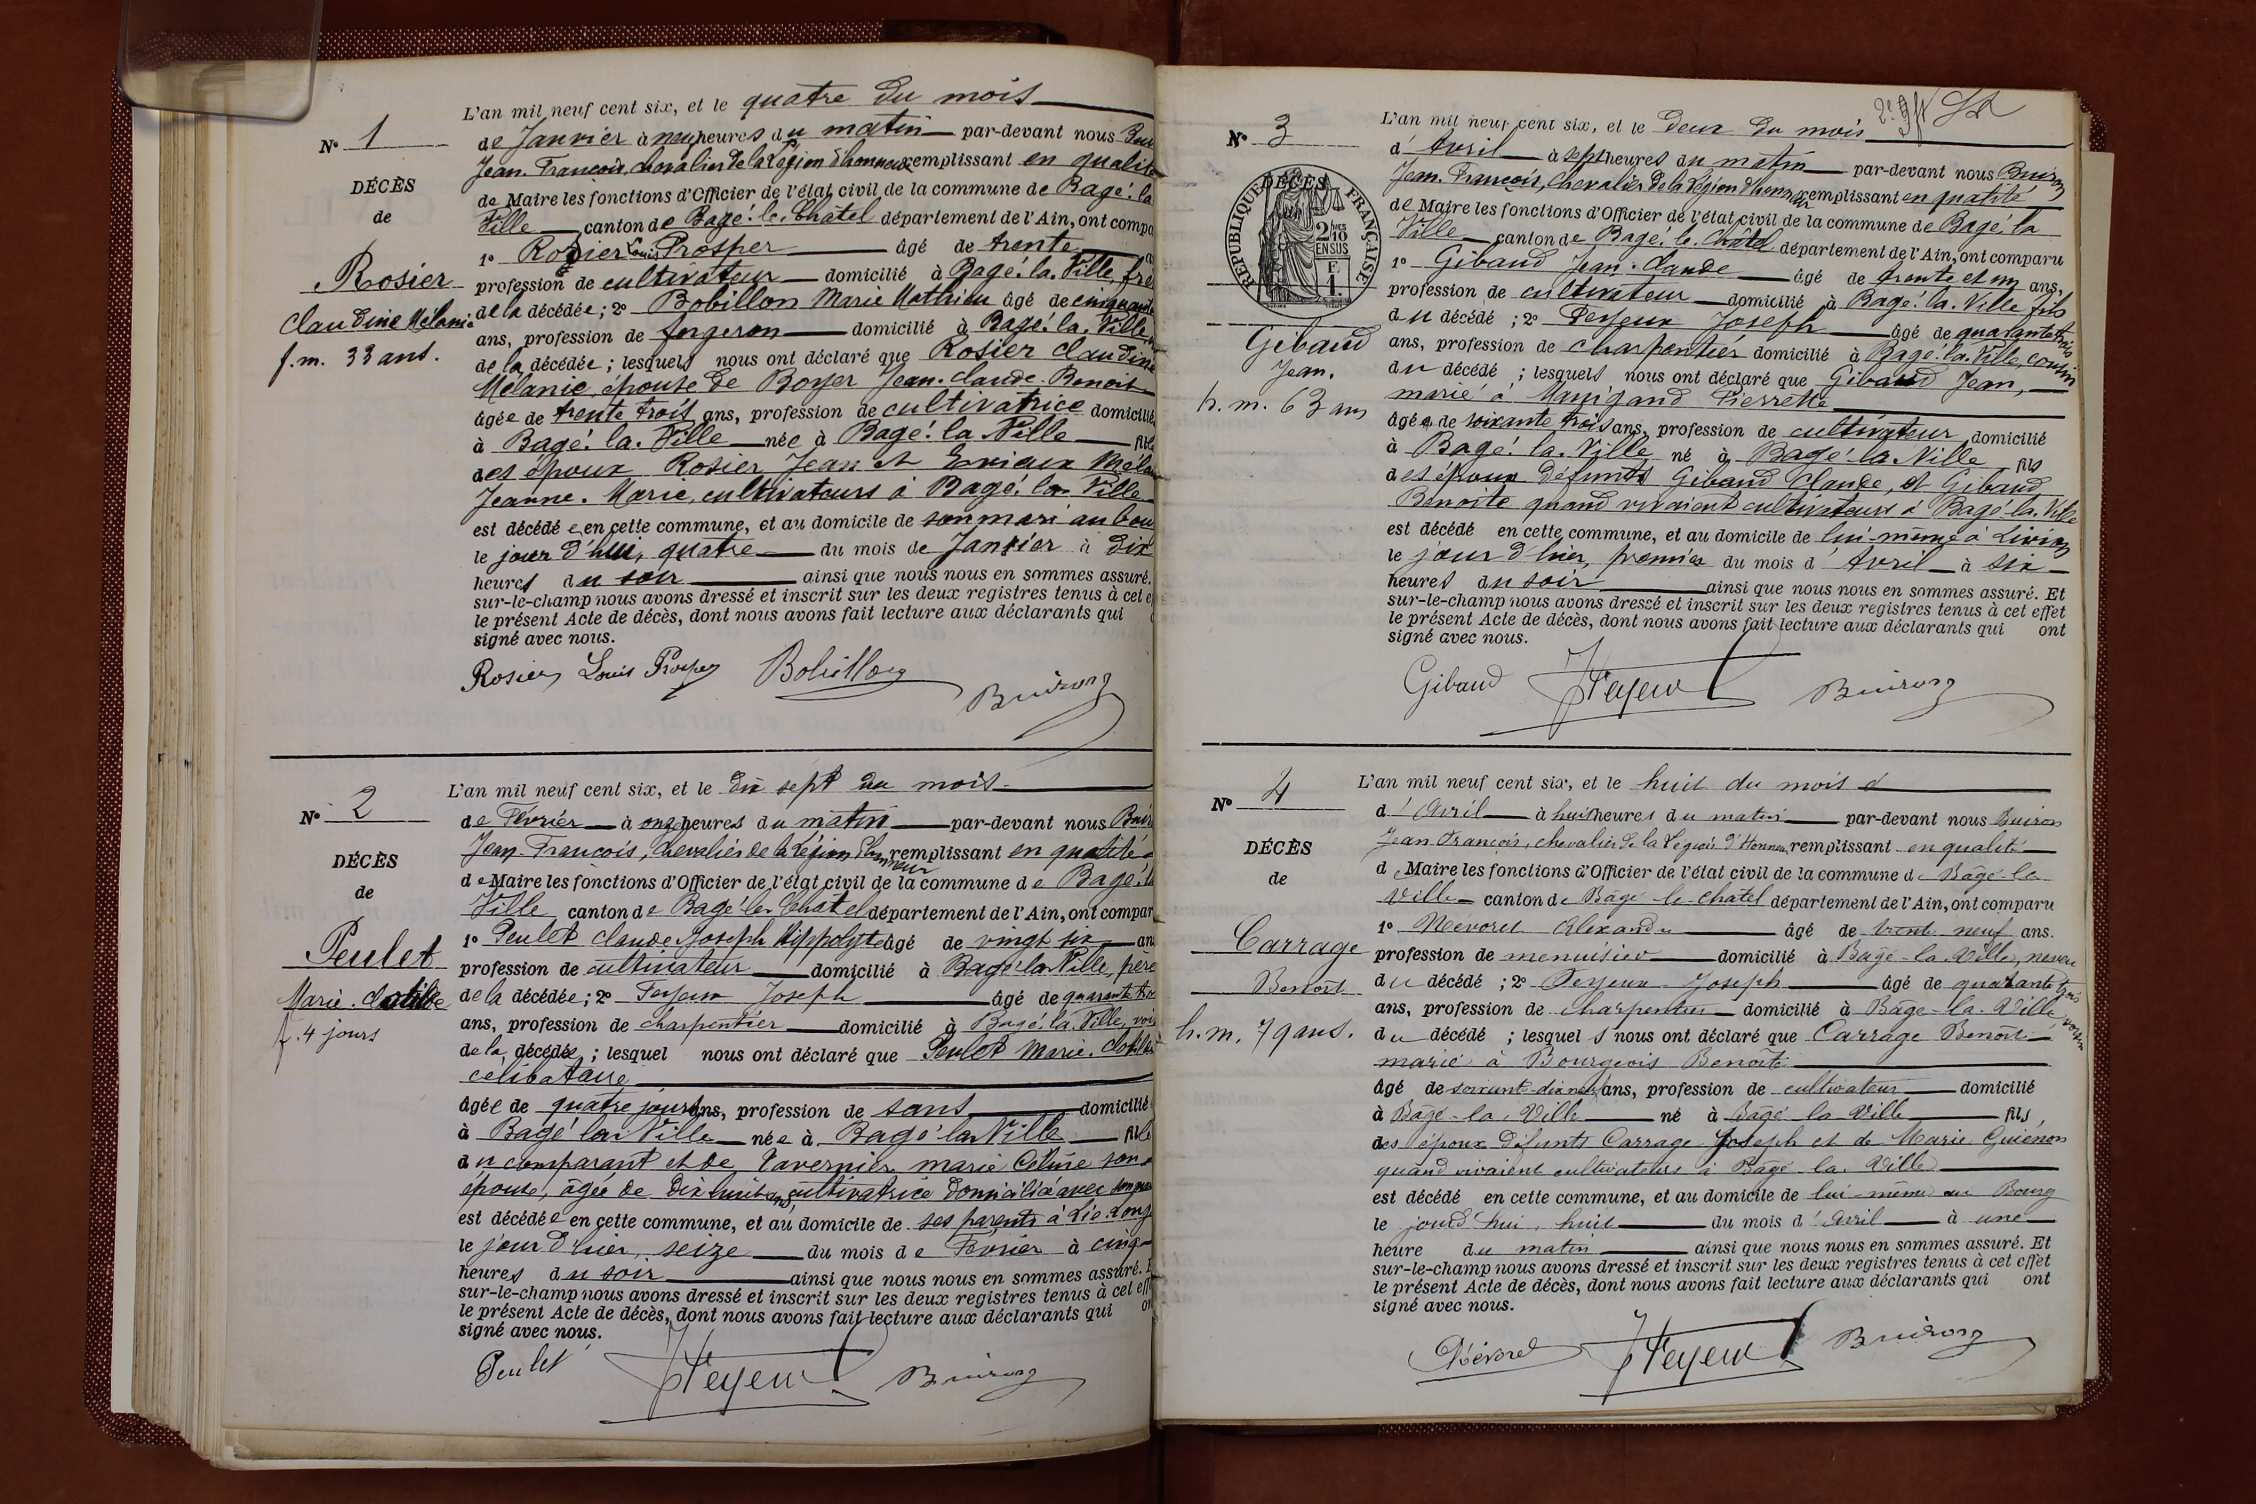 N° 1
DÉCÈS
de
Rosier
Claudine Mélanie
f. m. 33 ans.
L'an mil neuf cent six, et le quatre du mois
de Janvier à neuf heures du matin par-devant nous
Jean-François, chevalier de la Légion d'honneur remplissant en qualité
de Maire les fonctions d'Officier de l'état civil de la commune de Bagé-la
Ville canton de Bagé-le-Châtel département de l'Ain, ont compa
1° Rosier Louis Prosper âgé de trente
profession de cultivateur domicilié à Bagé-la-Ville, frè
de la décédée ; 2° Bobillon Marie Mathieu âgé de cinquante
ans, profession de forgeron domicilié à Bagé-la-Ville
de la décédée ; lesquels nous ont déclaré que Rosier Claudine
Mélanie, épouse de Boyer Jean-Claude-Benoît
âgée de trente trois ans, profession de cultivatrice domiciliée
à Bagé-la-Ville née à Bagé-la-Ville fille
des époux Rosier Jean et
Jeanne-Marie, cultivateurs à Bagé-la-Ville
est décédée en cette commune, et au domicile de son mari au bou
le jour d'hui, quatre du mois de Janvier à dix
heures du soir ainsi que nous nous en sommes assuré.
sur-le-champ nous avons dressé et inscrit sur les deux registres tenus à cet e
le présent Acte de décès, dont nous avons fait lecture aux déclarants qui
signé avec nous.
Rosier Louis Prosper Bobillon Buiron
N° 2
DÉCÈS
de
Peulet
Marie-Clotilde
f. 4 jours
L'an mil neuf cent six, et le dix sept du mois
de Février à onze heures du matin par-devant nous Buir
Jean-François, Chevalier de la Légion d'honneur remplissant en qualité
de Maire les fonctions d'Officier de l'état civil de la commune de Bagé-la
Ville canton de Bagé-le-Châtel département de l'Ain, ont compar
1° Peulet Claude Joseph Hippolyte âgé de vingt six an
profession de cultivateur domicilié à Bagé-la-Ville, père
de la décédée ; 2° Peyeux Joseph âgé de quarante tro
ans, profession de charpentier domicilié à Bagé-la-Ville, vois
de la décédée ; lesquel nous ont déclaré que Peulet Marie-Clotilde
célibataire
âgée de quatre jours ans, profession de sans domicilié
à Bagé-la-Ville née à Bagé-la-Ville fille
du comparant et de Tavernier Marie Céline son
épouse, âgée de dix huit ans, cultivatrice domiciliée avec
est décédée en cette commune, et au domicile de ses parents à
le jour d'hier, seize du mois de Février à cinq
heures du soir ainsi que nous nous en sommes assuré. E
sur-le-champ nous avons dressé et inscrit sur les deux registres tenus à cet eff
le présent Acte de décès, dont nous avons fait lecture aux déclarants qui on
signé avec nous.
Peulet JPeyeux Buiron
N° 3
RÉPUBLIQUE FRANÇAISE
2/10 EN SUS
F. 1.
DÉCÈS
Gibaud
Jean.
h. m. 63 ans
L'an mil neuf cent six, et le deux du mois
d'Avril à sept heures du matin par-devant nous Buiron
Jean-François, Chevalier de la Légion d'honneur remplissant en qualité
de Maire les fonctions d'Officier de l'état civil de la commune de Bagé-la
Ville canton de Bagé-le-Châtel département de l'Ain, ont comparu
1° Gibaud Jean-Claude âgé de trente et un ans,
profession de cultivateur domicilié à Bagé-la-Ville fils
du décédé ; 2° Peyeux Joseph âgé de quarante trois
ans, profession de charpentier domicilié à Bagé-la-Ville, cousin
du décédé ; lesquels nous ont déclaré que Gibaud Jean,
marié à Manigand Pierrette
âgé de soixante trois ans, profession de cultivateur domicilié
à Bagé-la-Ville né à Bagé-la-Ville fils
des époux défunts Gibaud Claude, et Gibaud
Benoite quand vivaient cultivateurs à Bagé-la-Ville
est décédé en cette commune, et au domicile de lui-même à
le jour d'hier, premier du mois d'Avril à six
heures du soir ainsi que nous nous en sommes assuré. Et
sur-le-champ nous avons dressé et inscrit sur les deux registres tenus à cet effet
le présent Acte de décès, dont nous avons fait lecture aux déclarants qui ont
signé avec nous.
Gibaud JPeyeux Buiron
N° 4
DÉCÈS
de
Carrage
Benoît
h. m. 79 ans.
L'an mil neuf cent six, et le huit du mois d
d'Avril à huit heures du matin par-devant nous Buiron
Jean François, chevalier de la Légion d'Honneur remplissant en qualité
de Maire les fonctions d'Officier de l'état civil de la commune de Bâgé-la
Ville canton de Bâgé-le-Châtel département de l'Ain, ont comparu
1° Névoret Alexandre âgé de vingt neuf ans.
profession de menuisier domicilié à Bâgé-la-Ville, neveu
du décédé ; 2° Peyeux Joseph âgé de quarante trois
ans, profession de charpentier domicilié à Bâgé-la-Ville, voisin
du décédé ; lesquels nous ont déclaré que Carrage Benoît
marié à Bourgeois Benoîte
âgé de soixante-dix neuf ans, profession de cultivateur domicilié
à Bâgé-la-Ville né à Bâgé la Ville fils
des époux défunts Carrage Joseph et de Marie Guiénon
quand vivaient cultivateurs à Bâgé-la-Ville
est décédé en cette commune, et au domicile de lui-même au Bourg
le jourd'hui, huit du mois d'Avril à une
heure du matin ainsi que nous nous en sommes assuré. Et
sur-le-champ nous avons dressé et inscrit sur les deux registres tenus à cet effet
le présent Acte de décès, dont nous avons fait lecture aux déclarants qui ont
signé avec nous.
Névoret JPeyeux Buiron